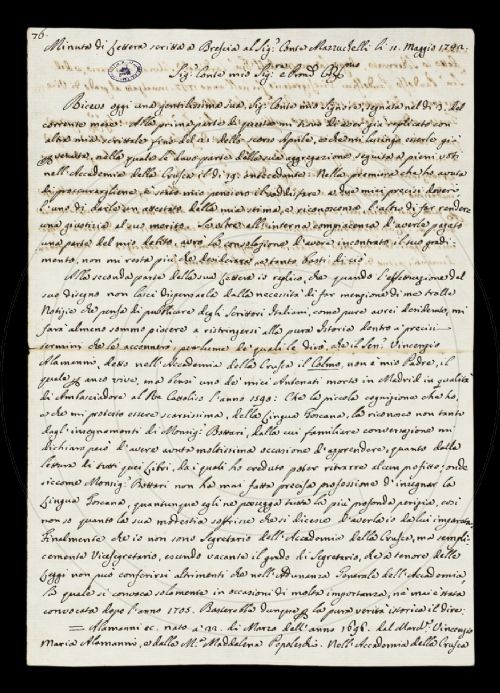 76.
Minuta di Lettera scritta a Brescia al Sig.r Conte Mazzuchelli li 11. Maggio 17
Sig.r Conte mio Sig.re e Pron
Ricevo oggi una gentilissima sua, Sig.r Conto mio Signore, segnata nel dì 3. del
corrente mese: Alla prima parte di questa mi trovo d'aver già replicato con
altra mia scrittale fino del dì della scorso Aprile, e che mi lusingo esserle già
pervenuta, nella quale le davo parte della sua aggregazione seguita a pieni voti
nell'Accademia della Crusca il dì 19. antecedente: Nella premura che ho avuta
di procurargliene, è stato mio pensiero il soddisfare a due miei precisi doveri,
l'uno di darle un attestato della mia stima, e riconoscenza, l'altro di far rendere
una giustizia al suo merito. Se oltre all'interna compiacenza d'averla pagato
una parte del mio debito, avrò la consolazione d'avere incontrato il suo gradi-
mento, non mi resta più che desiderare, e tanto basti di ciò.
Alla seconda parte della sua Lettera io replico, che quando l'effettuazione del
suo disegno non lasci dispensarla dalla necessità di far menzione di me tralle
Notizie che pensa di pubblicare degli Scrittori Italiani, come pure avrei desiderato, mi
farà almeno sommo piacere a ristringersi alla pura Istoria dentro a precisi
termini che le accennerò, parlerne de' quali le dirò, che il Sen.r Vincenzio
Alamanni, detto nell'Accademia della Crusca il Colmo, non è mio Padre, il
quale per anco vive, ma bensì uno de' miei Antenati morto in Madrid in qualità
di Ambasciadore al Re Cattolico l'anno 1590: Che la piccola cognizione che ho,
e che mi protesto essere scarsissima, della Lingua Toscana, la riconosco non tanto
dagl'insegnamenti di Monsig.r Bottari, dalla cui familiare conversazione mi
dichiaro però d'avere avuta moltissima occasione d'apprendere, quanto dalla
lettura di tutti quei Libri, da i quali ho creduto poter ritrarre alcun profitto; onde
siccome Monsig.r Bottari non ha mai fatta precisa professione di insegnar la
Lingua Toscana, quantunque egli ne possegga tutta la più profonda perizia, così
non so quanto la sua modestia soffrisse che si dicesse d'averla io da lui imparata
Finalmente che io non sono Segretario dell'Accademia della Crusca, ma sempli-
cemente Vicesegretario, essendo vacante il grado di Segretario, che a tenore delle
Leggi non può conferirsi altrimenti che nell'Adunanza Generale dell'Accademia,
la quale si convoca solamente in occasioni di molta importanza, nè mai è stata
convocata dopo l'anno 1705. Basterebbe dunque per la pura verità istorica il dire:
= Alamanni ec. nato a' 22. di Marzo dell'anno 1696. dal March.e Vincenzio
Maria Alamanni, e dalla M.a Maddalena Popoleschi. Nell'Accademia della Crusca